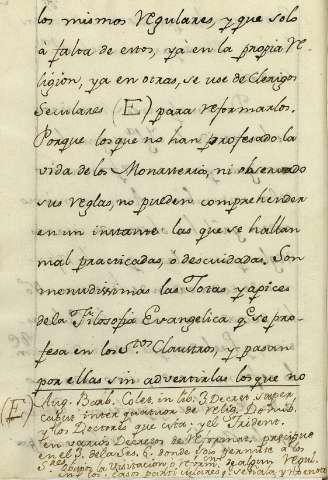 los mismos Regulares, y que solo
à falta de estos, yà en la propia Re-
ligion, ya en otras, se use de Clerigos
Seculares (E) para reformarlos.
Porque los que no han profesado la
vida de los Monasterios, ni observado
sus reglas, no pueden comprehender
en un instante las que se hallan
mal practicadas, ó descuidadas. Son
menudissimas las Jotas y apices
de la Filosofia Evangelica q. se pro-
fesa en los Stos. Claustros, y pasan
por ellas sin advertirlas los que no
(E) Aug. Barb. Colet. in lib. 3 Decret. super
y los Doctores que cita: y el Trident.
en varios Decretos de Reformat.
en el 3. de la Ses. 6. donde
la Visitacion de algun Regul.
en los casos particulares